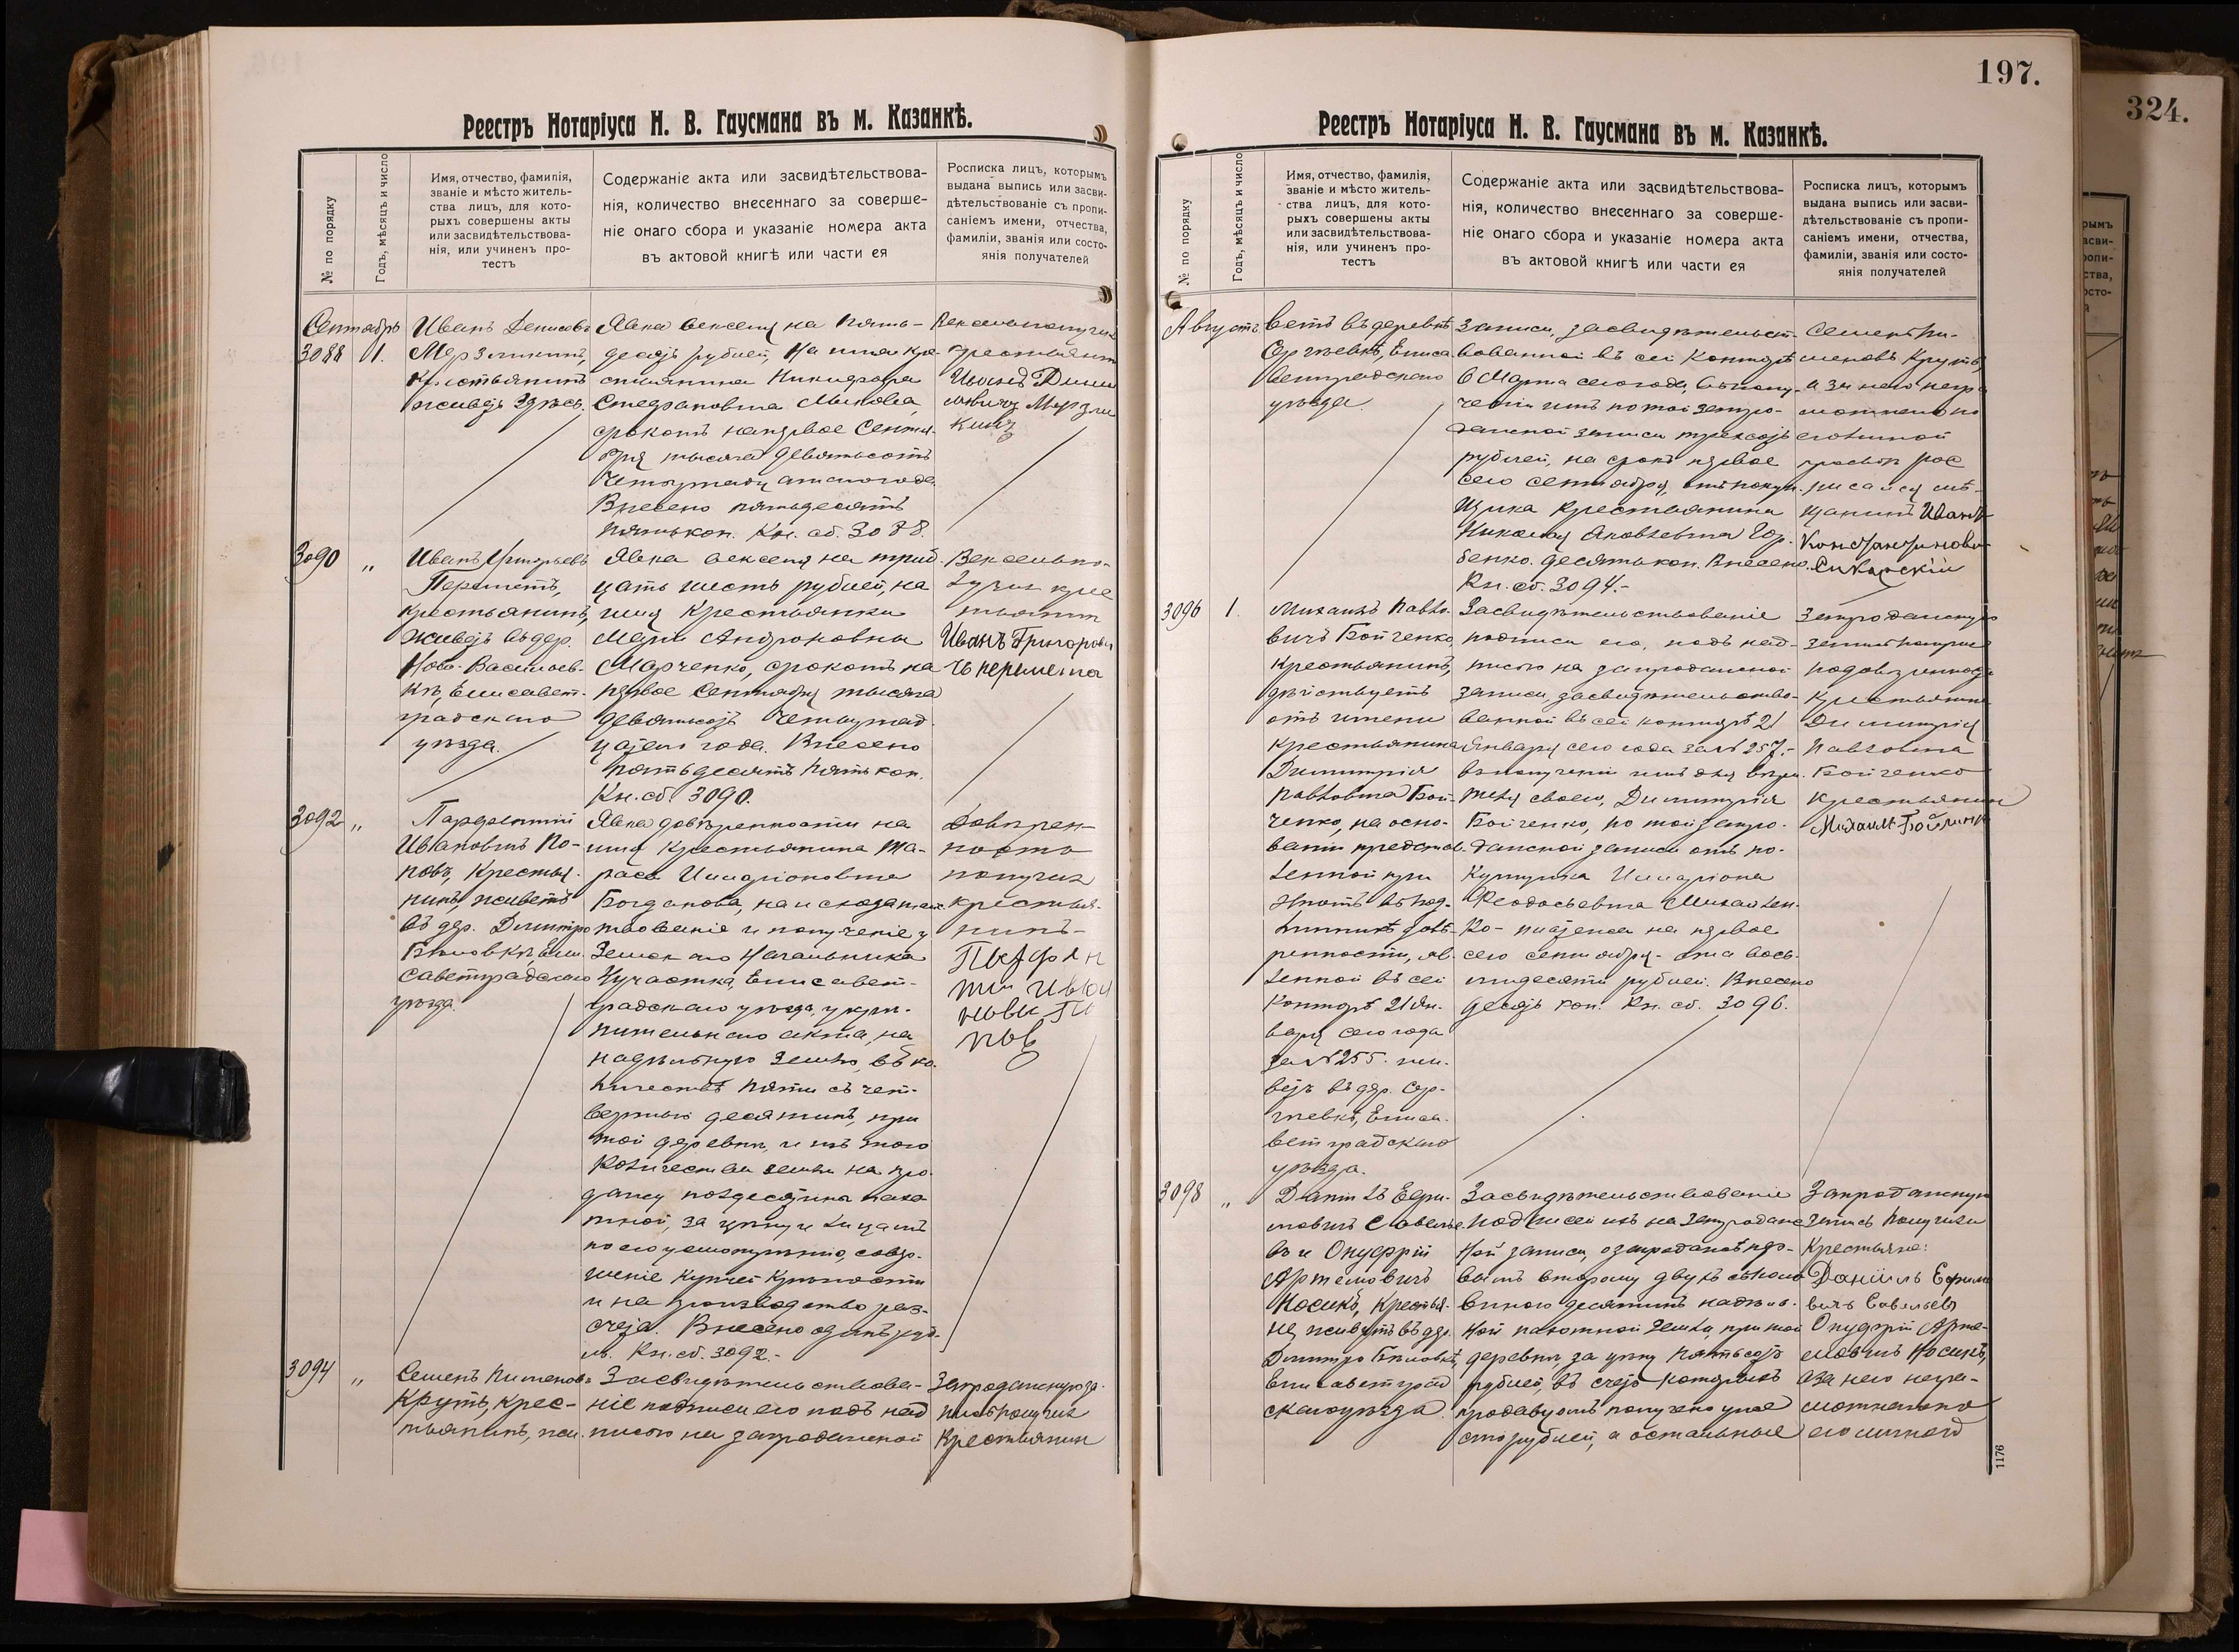 Реестръ Нотаріуса Н. В. Гаусмана въ м. Казанкѣ.
№ по порядку
Годъ, мѣсяцъ и число
Имя, отчество, фамилія,
званіе и мѣсто житель-
ства лицъ, для кото-
рыхъ совершены акты
или засвидѣтельствова-
нія, или учиненъ про-
тестъ
Содержаніе акта или засвидѣтельствова-
нія, количество внесеннаго за соверше-
ніе онаго сбора и указаніе номера акта
въ актовой книгѣ или части ея
Росписка лицъ, которымъ
выдана выпись или засви-
дѣтельствованіе съ пропи-
саніемъ имени, отчества,
фамиліи, званія или состо-
янія получателей
Сентябрь
3088 1.
Иванъ Денисовъ
Мерзликинъ,
крестьянинъ
живетъ здѣсь.
Явка векселя на пять-
десятъ рублей, на имя кре-
стьянина Никифора
Стефановича
срокомъ на первое Сентя-
бря тысяча девятьсотъ
Четырнадцатаго года.
Внесено пятьдесятъ
пять коп. Кн. сб. 3088.
Вексель получилъ
крестьянин
Мерзли
кинъ
3090 „
Иванъ Григорьевъ
Переметъ,
крестьянинъ,
живетъ въ дер.
Ново-Васильев-
кѣ, Елисавет-
градскаго
уѣзда.
Явка векселя на трид-
цать шесть рублей, на
имя крестьянки
Маріи Андроновны
Марченко, срокомъ на
первое Сентября тысяча
девятьсотъ Четырнад-
цатаго года. Внесено
пятьдесятъ пять коп.
Кн. сб. 3090.
Вексель по-
лучил крес
тьянин
Иванъ Григорови
чъ переметъ
3092 „
Парфентій
Ивановичъ По-
повъ, Крестья-
нинъ, живетъ
въ дер. Дмитро
Бѣловкѣ, Ели-
саветградскаго
уѣзда.
Явка довѣренности на
имя Крестьянина Та-
раса Иларіоновича
Богданова, на исходатай-
ствованіе и полученіе у
Земскаго Начальника
участка, Елисавет-
градскаго уѣзда, укрѣ-
пительнаго акта, на
надѣльную землю, въ ко-
личествѣ пяти съ чет-
вертью десятинъ, при
той деревни, и изъ того
количества земли на про-
дажу полдесятины паха-
тной, за цѣну и лицамъ
по его усмотрѣнію, совер-
шеніе купчей крѣпости
и на производство раз-
счета. Внесено одинъ руб-
ль. Кн. сб. 3092.-
Довѣрен-
ность
получилъ
крестья-
нинъ-
3094 „
Семенъ Пименовъ
Круть, крес-
тьянинъ, жи-
Засвидѣтельствова-
ніе подписи его подъ над
писью на запродажной
Запродажную за-
пись получилъ
Крестьянин
197.
Реестръ Нотаріуса Н. В. Гаусмана въ м. Казанкѣ.
№ по порядку
Годъ, мѣсяцъ и число
Имя, отчество, фамилія,
званіе и мѣсто житель-
ства лицъ, для кото-
рыхъ совершены акты
или засвидѣтельствова-
нія, или учиненъ про-
тестъ
Содержаніе акта или засвидѣтельствова-
нія, количество внесеннаго за соверше-
ніе онаго сбора и указаніе номера акта
въ актовой книгѣ или части ея
Росписка лицъ, которымъ
выдана выпись или засви-
дѣтельствованіе съ пропи-
саніемъ имени, отчества,
фамиліи, званія или состо-
янія получателей
Августъ
ветъ въ деревнѣ
Сергѣевкѣ, Елиса
ветградскаго
уѣзда.
записи, засвидѣтельст-
вованной въ сей Конторѣ
6 Марта сего года, въ полу-
ченіи имъ по той запро-
дажной записи трехсотъ
рублей, на срокъ первое
сего сентября, отъ покуп-
щика Крестьянина
Николая Яковлевича Гор-
бенко. десять коп. Внесено
Кн. сб. 3094.-
Семенъ Пи-
меновъ Круть,
а за него негра
мотнаго по
его личной
просьбѣ рас
писался мѣ-
щанинъ Иванъ
Константинович
3096 1.
Михаилъ Павло-
вичъ Бойченко,
крестьянинъ,
дѣйствуетъ
отъ имени
крестьянина
Димитрія
Павловича Бой-
ченко, на осно-
ваніи представ-
ленной при
этомъ въ под-
линникѣ довѣ-
ренности, яв-
ленной въ сей
Конторѣ 21 Ян-
варя сего года
за № 255. жи-
ветъ въ дер. Сер-
гѣевкѣ, Елиса-
ветградскаго
уѣзда.
Засвидѣтельствованіе
подписи его, подъ над-
писью на запродажной
записи, засвидѣтельство-
ванной въ сей конторѣ 21
Января сего года за № 257.-
въ полученіи имъ для вѣри-
теля своего, Димитрія
Бойченко, по той запро-
дажной записи отъ по-
купщика Иларіона
Феодосьевича Михайлен-
ко- платежа на первое
сего сентября- ста вось-
мидесяти рублей. Внесено
десять коп. Кн. сб. 3096.
Запродажную
запись получил
Крестьянина
Димитрія
Павловича
Бойченко
крестьянин
Михаилъ Бойченко
3098 „
Даніилъ Ефи-
мовичъ Савелье
въ и Онуфрій
Артемовичъ
Носикъ, Крестья-
не, живутъ въ дер.
Димитро Бѣловкѣ,
Елисаветград
скаго уѣзда.
Засвидѣтельствованіе
подписей ихъ на запродаж
ной записи, о запродажѣ пер-
вымъ второму двухъ съ поло
виною десятинъ надѣль-
ной пахотной земли, при той
деревни, за цѣну пятьсотъ
рублей, въ счетъ которыхъ
продавцомъ получено уже
сто рублей, а остальные
Запродажную
запись получили
Крестьяне:
Даніилъ Ефимо
вичъ Савельевъ
Онуфрій Арте-
мовичъ Носикъ,
а за него негра-
мотнаго по
его личной
1176
324.